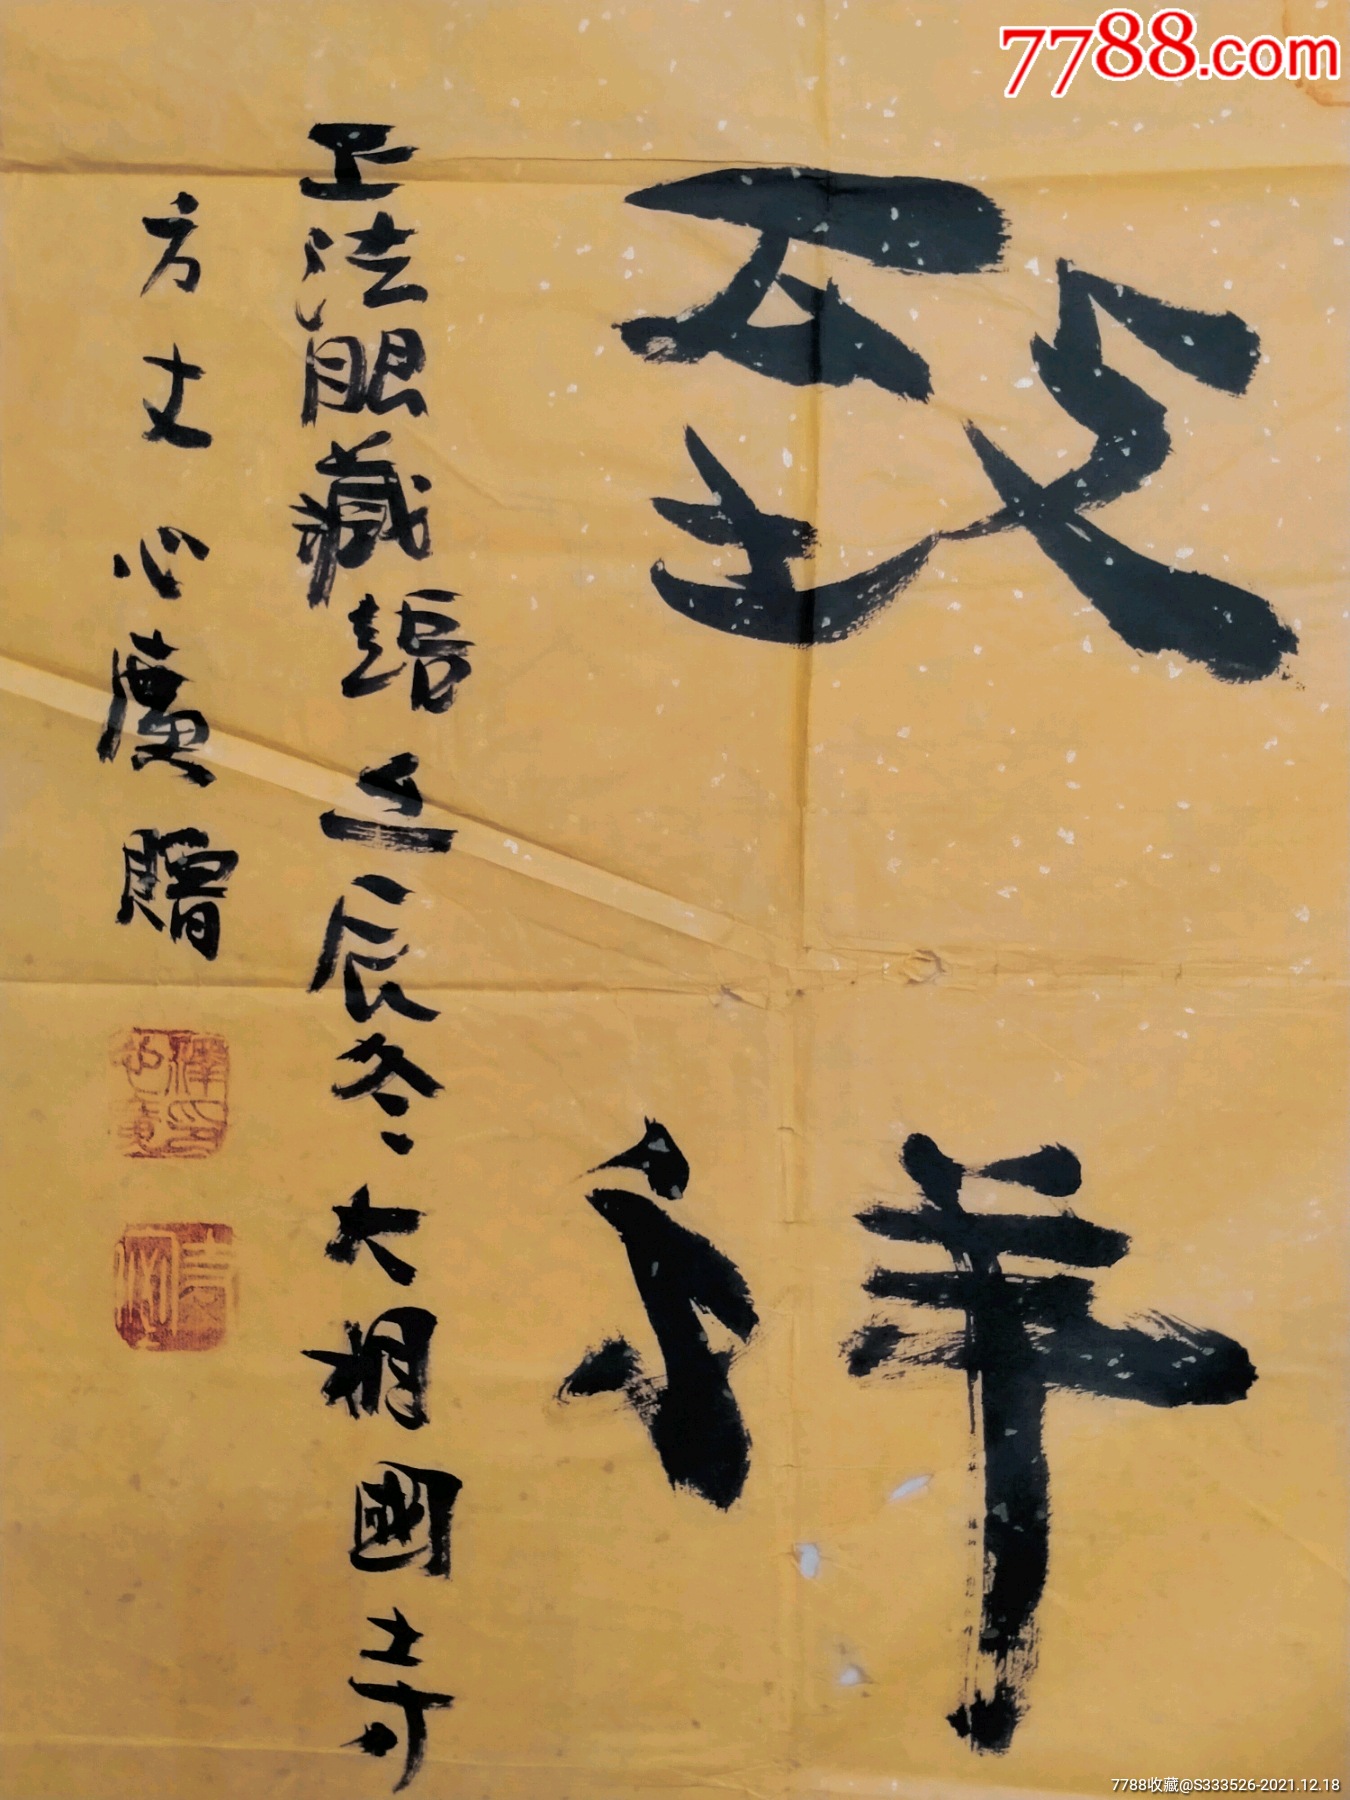 7788.com
致祥
正法眼藏 壬辰冬、大相國寺
方丈心廣贈
釋心廣印
7788收藏@S333526-2021.12.18